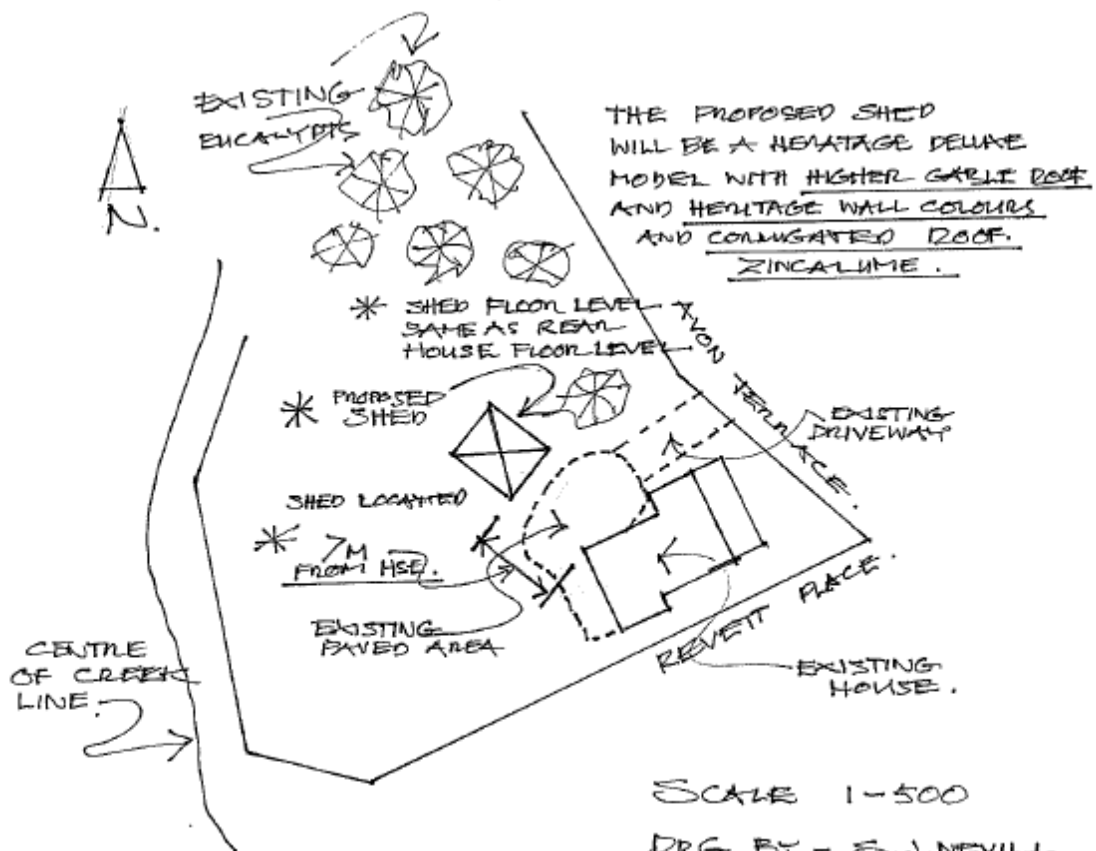 EXISTING
EUCALYPTS
N.
THE PROPOSED SHED
WILL BE A HERATAGE DELUXE
MODEL WITH HIGHER GABLE ROOF
AND HERITAGE WALL COLOURS
AND CORRUGATED ROOF.
ZINCALUME.
* SHED FLOOR LEVEL
SAME AS REAR
HOUSE FLOOR LEVEL
AVON TERRACE.
* PROPOSED
SHED
EXISTING
DRIVEWAY
SHED LOCATED
* 7M
FROM HSE.
EXISTING
PAVED AREA
REVETT PLACE.
EXISTING
HOUSE.
CENTRE
OF CREEK
LINE.
SCALE 1-500
DRG BY -